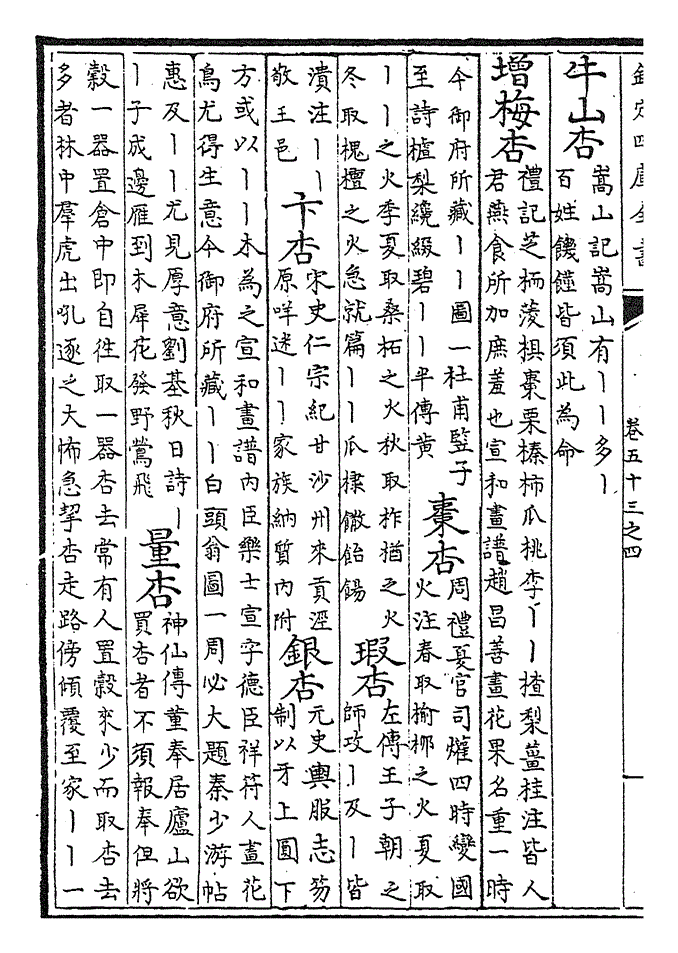 欽定四庫全書
卷五十三之四
一
牛山杏
嵩山記嵩山有丨丨多丨
百姓饑饉皆須此為命
增梅杏
禮記芝栭蔆椇棗栗榛柿瓜桃李丨丨楂梨薑桂注皆人
君燕食所加庶羞也宣和畫譜趙昌善畫花果名重一時
今御府所藏丨丨圖一杜甫豎子
至詩樝梨纔綴碧丨丨半傳黄
棗杏
周禮夏官司爟四時變國
火注春取榆桺之火夏取
丨丨之火季夏取桑柘之火秋取柞楢之火
冬取槐檀之火急就篇丨丨瓜棣饊飴餳
瑕杏
左傳王子朝之
師攻丨及丨皆
潰注丨丨
敬王邑
卞杏
宋史仁宗紀甘沙州來貢涇
原咩迷丨丨家族納質內附
銀杏
元史輿服志笏
制以牙上圓下
方或以丨丨木為之宣和畫譜內臣樂士宣字德臣祥符人畫花
鳥尤得生意今御府所藏丨丨白頭翁圖一周必大題秦少游帖
惠及丨丨尤見厚意劉基秋日詩丨
丨子成邊雁到木犀花發野鶯飛
量杏
神仙傳董奉居廬山欲
買杏者不須報奉但將
穀一器置倉中即自往取一器杏去常有人置穀來少而取杏去
多者林中羣虎出吼逐之大怖急挈杏走路傍傾覆至家丨丨一